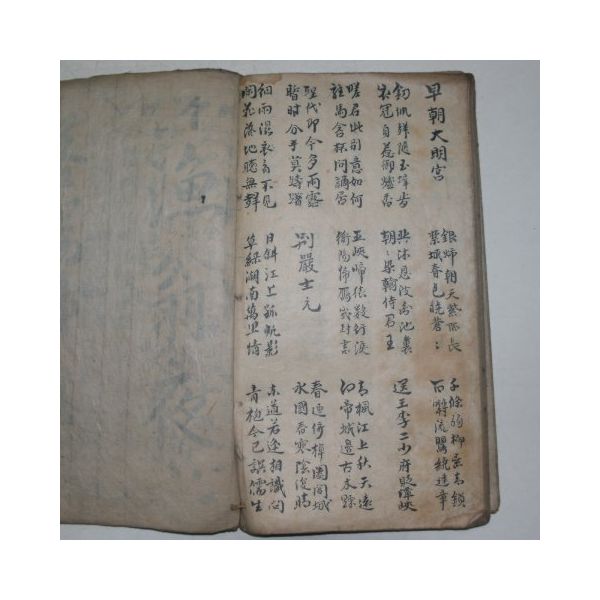 早朝大明宮
銀燭朝天紫陌長
禁城春色曉蒼〻
千條弱柳垂青鎖
百囀流鶯繞建章
釼佩聲隨玉墀步
衣冠身惹御爐香
共沐恩波鳳池裏
朝〻染翰侍君王
送王李二少府貶潭峽
嗟君此別意如何
駐馬含杯問謫居
巫峽啼猿數行淚
衡陽歸鴈幾封書
青楓江上秋天遠
白帝城邊古木疎
聖代即今多雨露
暫時分手莫躊躇
別嚴士元
春風倚棹闔閭城
水國春寒陰復晴
細雨濕衣看不見
閑花落地聽無聲
日斜江上孤帆影
草綠湖南萬里情
東道若逢相識問
青袍今已誤儒生